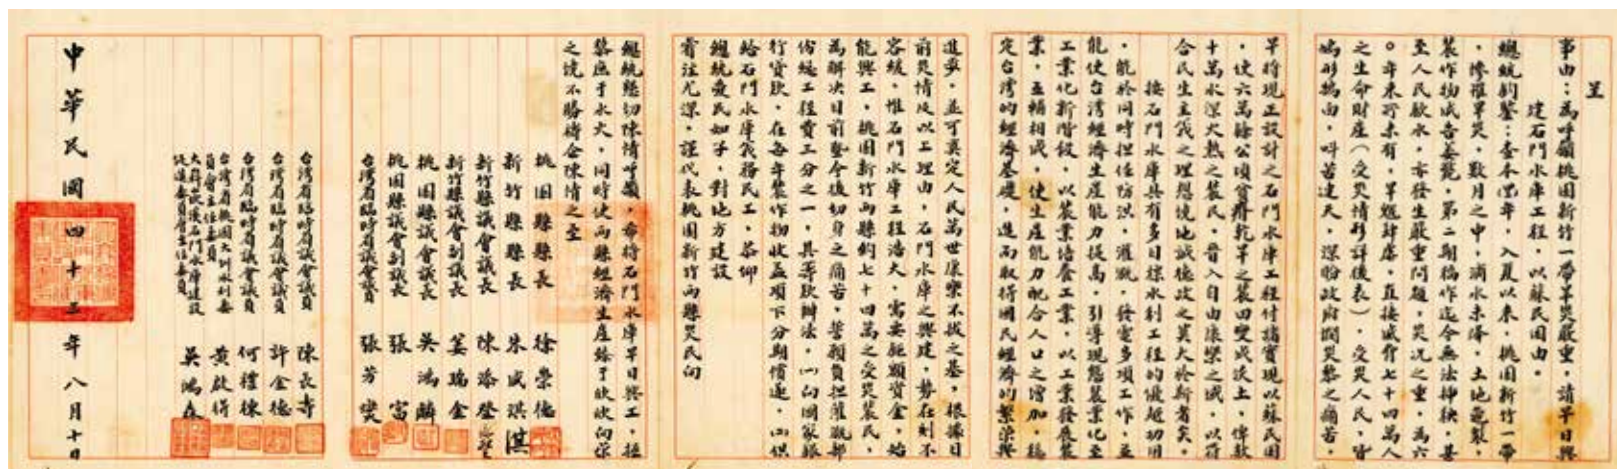 呈
事由：為呼籲桃園新竹一帶旱災嚴重，請早日興
建石門水庫工程，以蘇民困由。
總統鈞鑒：查本年，入夏以來，桃園新竹一帶
，慘罹旱災，數月之中，滴水未降，土地龜裂，
農作物咸告萎斃，第二期稻作迄今無法挿秧，甚
至人民飲水，亦發生嚴重問題，災況之重，為六
○年來所未有，旱魃肆虐，直接威脅七十四萬人
之生命財產（受災情形詳後表），受災人民，皆
鳩形鵠面，呼苦連天，深盼政府憫災黎之痛苦，
早將現正設計之石門水庫工程付諸實現以蘇民困
，使六萬餘公頃貧瘠乾旱之農田變成沃土，俾救
十萬水深火熱之農民，登入自由康樂之域，以符
合民生主義之理想境地誠德政之莫大於斯者矣。
按石門水庫具有多目標水利工程的優越功用
，能於同時担任防洪，灌溉，發電多項工作，並
能使台灣經濟生產能力提高，引導現態農業化至
工業化新階段，以農業培養工業，以工業發展農
業，互輔相成，使生產能力配合人口之增加，穩
定台灣的經濟基礎，進而取得國民經濟的繁榮與
進步，並可奠定人民萬世康樂不拔之基，根據目
前災情及以上理由，石門水庫之興建，勢在刻不
容緩，惟石門水庫工程浩大，需要龐巨資金，始
能興工，桃園新竹兩縣約七十四萬之受災農民，
為解決目前暨今後切身之痛苦，誓願負担灌溉部
份總工程費三分之一，具籌款辦法，一向國家銀
行貸款，在每年農作物收益項下分期償還，二供
給石門水庫義務民工，恭仰
總統愛民如子，對地方建設
眷注尤深，謹代表桃園新竹兩縣災民向
總統懇切陳情呼籲，希將石門水庫早日興工，拯
黎庶于水火，同時使兩縣經濟生產臻于欣欣向榮
之境不勝禱企陳情之至
桃園縣縣長 徐崇德
新竹縣縣長 朱盛淇
新竹縣議會議長 陳添登
新竹縣議會副議長 姜瑞金
桃園縣議會議長 吳鴻麟
桃園縣議會副議長 張富
台灣省臨時省議會議員 張芳燮
台灣省臨時省議會議員 陳長壽
台灣省臨時省議會議員 許金德
台灣省臨時省議會議員 何禮棟
台灣省桃園大圳水利委
員會主任委員 黃啟
石門水庫建設
促進委員會主任委員 吳鴻森
中華民國四十三年八月十日